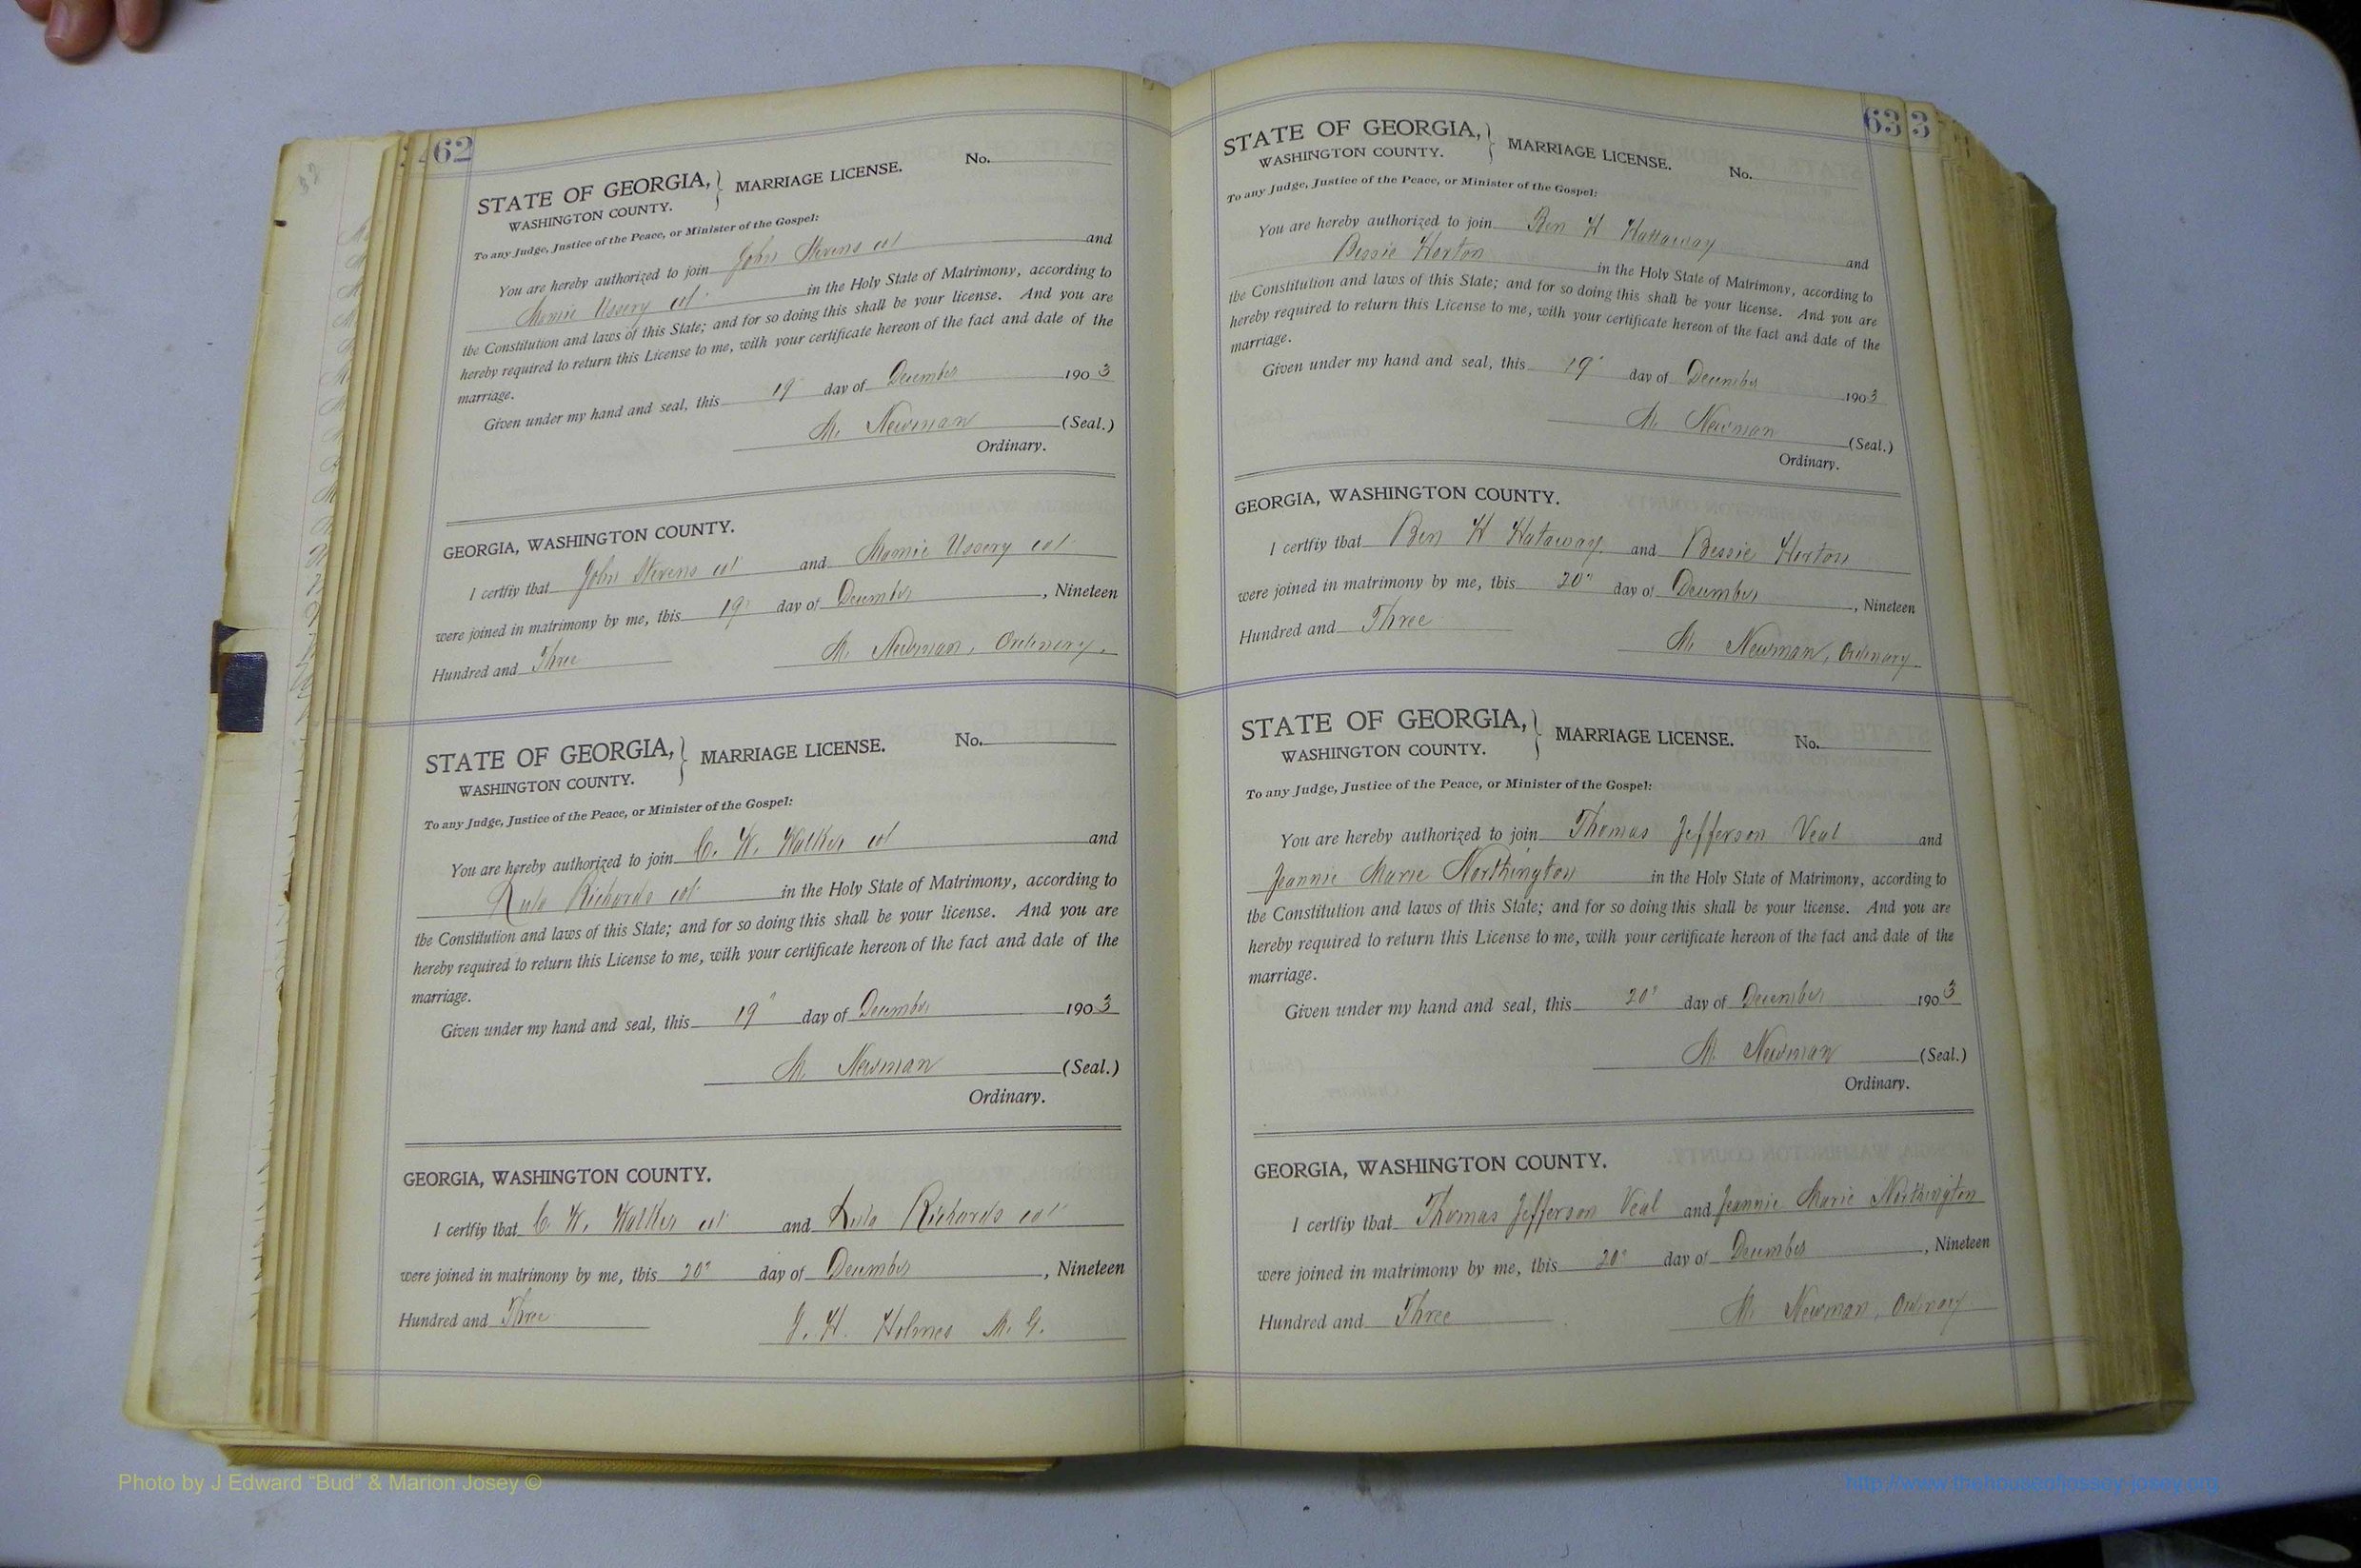 62
STATE OF GEORGIA, } MARRIAGE LICENSE. No.
WASHINGTON COUNTY.
To any Judge, Justice of the Peace, or Minister of the Gospel:
You are hereby authorized to join John Stevens col and
Mamie Ussery col in the Holy State of Matrimony, according to
the Constitution and laws of this State; and for so doing this shall be your license. And you are
hereby required to return this License to me, with your certificate hereon of the fact and date of the
marriage.
Given under my hand and seal, this 19" day of December 1903
M. Newman (Seal.)
Ordinary.
GEORGIA, WASHINGTON COUNTY.
I certfiy that John Stevens col and Mamie Ussery col
were joined in matrimony by me, this 19" day of December, Nineteen
Hundred and Three M. Newman, Ordinary.
STATE OF GEORGIA, } MARRIAGE LICENSE. No.
WASHINGTON COUNTY.
To any Judge, Justice of the Peace, or Minister of the Gospel:
You are hereby authorized to join C. W. Walker col and
Lula Richards col in the Holy State of Matrimony, according to
the Constitution and laws of this State; and for so doing this shall be your license. And you are
hereby required to return this License to me, with your certificate hereon of the fact and date of the
marriage.
Given under my hand and seal, this 19" day of December 1903
M. Newman (Seal.)
Ordinary.
GEORGIA, WASHINGTON COUNTY.
I certfiy that C. W. Walker col and Lula Richards col
were joined in matrimony by me, this 20" day of December, Nineteen
Hundred and Three J. H. Holmes M. G.
63 3
STATE OF GEORGIA, } MARRIAGE LICENSE. No.
WASHINGTON COUNTY.
To any Judge, Justice of the Peace, or Minister of the Gospel:
You are hereby authorized to join Ben H Hattaway and
Bessie Horton in the Holy State of Matrimony, according to
the Constitution and laws of this State; and for so doing this shall be your license. And you are
hereby required to return this License to me, with your certificate hereon of the fact and date of the
marriage.
Given under my hand and seal, this 19" day of December 1903
M. Newman (Seal.)
Ordinary.
GEORGIA, WASHINGTON COUNTY.
I certfiy that Ben H Hataway and Bessie Horton
were joined in matrimony by me, this 20" day of December, Nineteen
Hundred and Three M. Newman, Ordinary.
STATE OF GEORGIA, } MARRIAGE LICENSE. No.
WASHINGTON COUNTY.
To any Judge, Justice of the Peace, or Minister of the Gospel:
You are hereby authorized to join Thomas Jefferson Veal and
Jeannie Marie Northington in the Holy State of Matrimony, according to
the Constitution and laws of this State; and for so doing this shall be your license. And you are
hereby required to return this License to me, with your certificate hereon of the fact and date of the
marriage.
Given under my hand and seal, this 20" day of December 1903
M. Newman (Seal.)
Ordinary.
GEORGIA, WASHINGTON COUNTY.
I certfiy that Thomas Jefferson Veal and Jeannie Marie Northington
were joined in matrimony by me, this 20" day of December, Nineteen
Hundred and Three M. Newman, Ordinary
Photo by J Edward “Bud” & Marion Josey ©
http://www.thehouseofjossey-josey.org